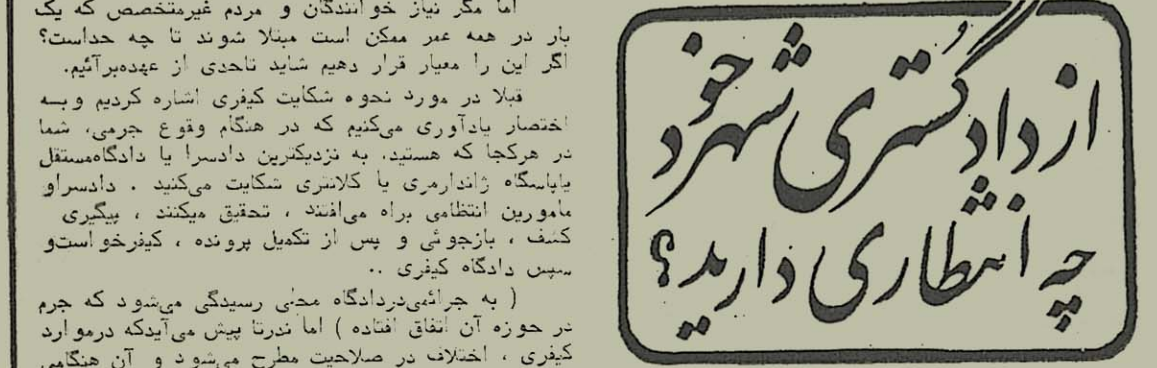 از دادگستری شهر خود
چه انتظاری دارید؟
اما مگر نیاز خوانندگان و مردم غیرمتخصص که یک
بار در همه عمر ممکن است مبتلا شوند تا چه حداست؟
اگر این را معیار قرار دهیم شاید تاحدی از عهده‌برآئیم.
قبلا در مورد نحوه شکایت کیفری اشاره کردیم وبه
اختصار یادآوری می‌کنیم که در هنگام وقوع جرمی، شما
در هرکجا که هستید، به نزدیکترین دادسرا یا دادگاه‌مستقل
یاپاسگاه ژاندارمری یا کلانتری شکایت می‌کنید . دادسراو
مامورین انتظامی براه می‌افتند ، تحقیق میکنند ، پیگیری
کشف ، بازجوئی و پس از تکمیل پرونده ، کیفرخواست‌و
سپس دادگاه کیفری ..
( به جرائمی‌دردادگاه محلی رسیدگی می‌شود که جرم
در حوزه آن اتفاق افتاده ) اما ندرتا پیش می‌آیدکه درموارد
کیفری ، اختلاف در صلاحیت مطرح می‌شود و آن هنگامی